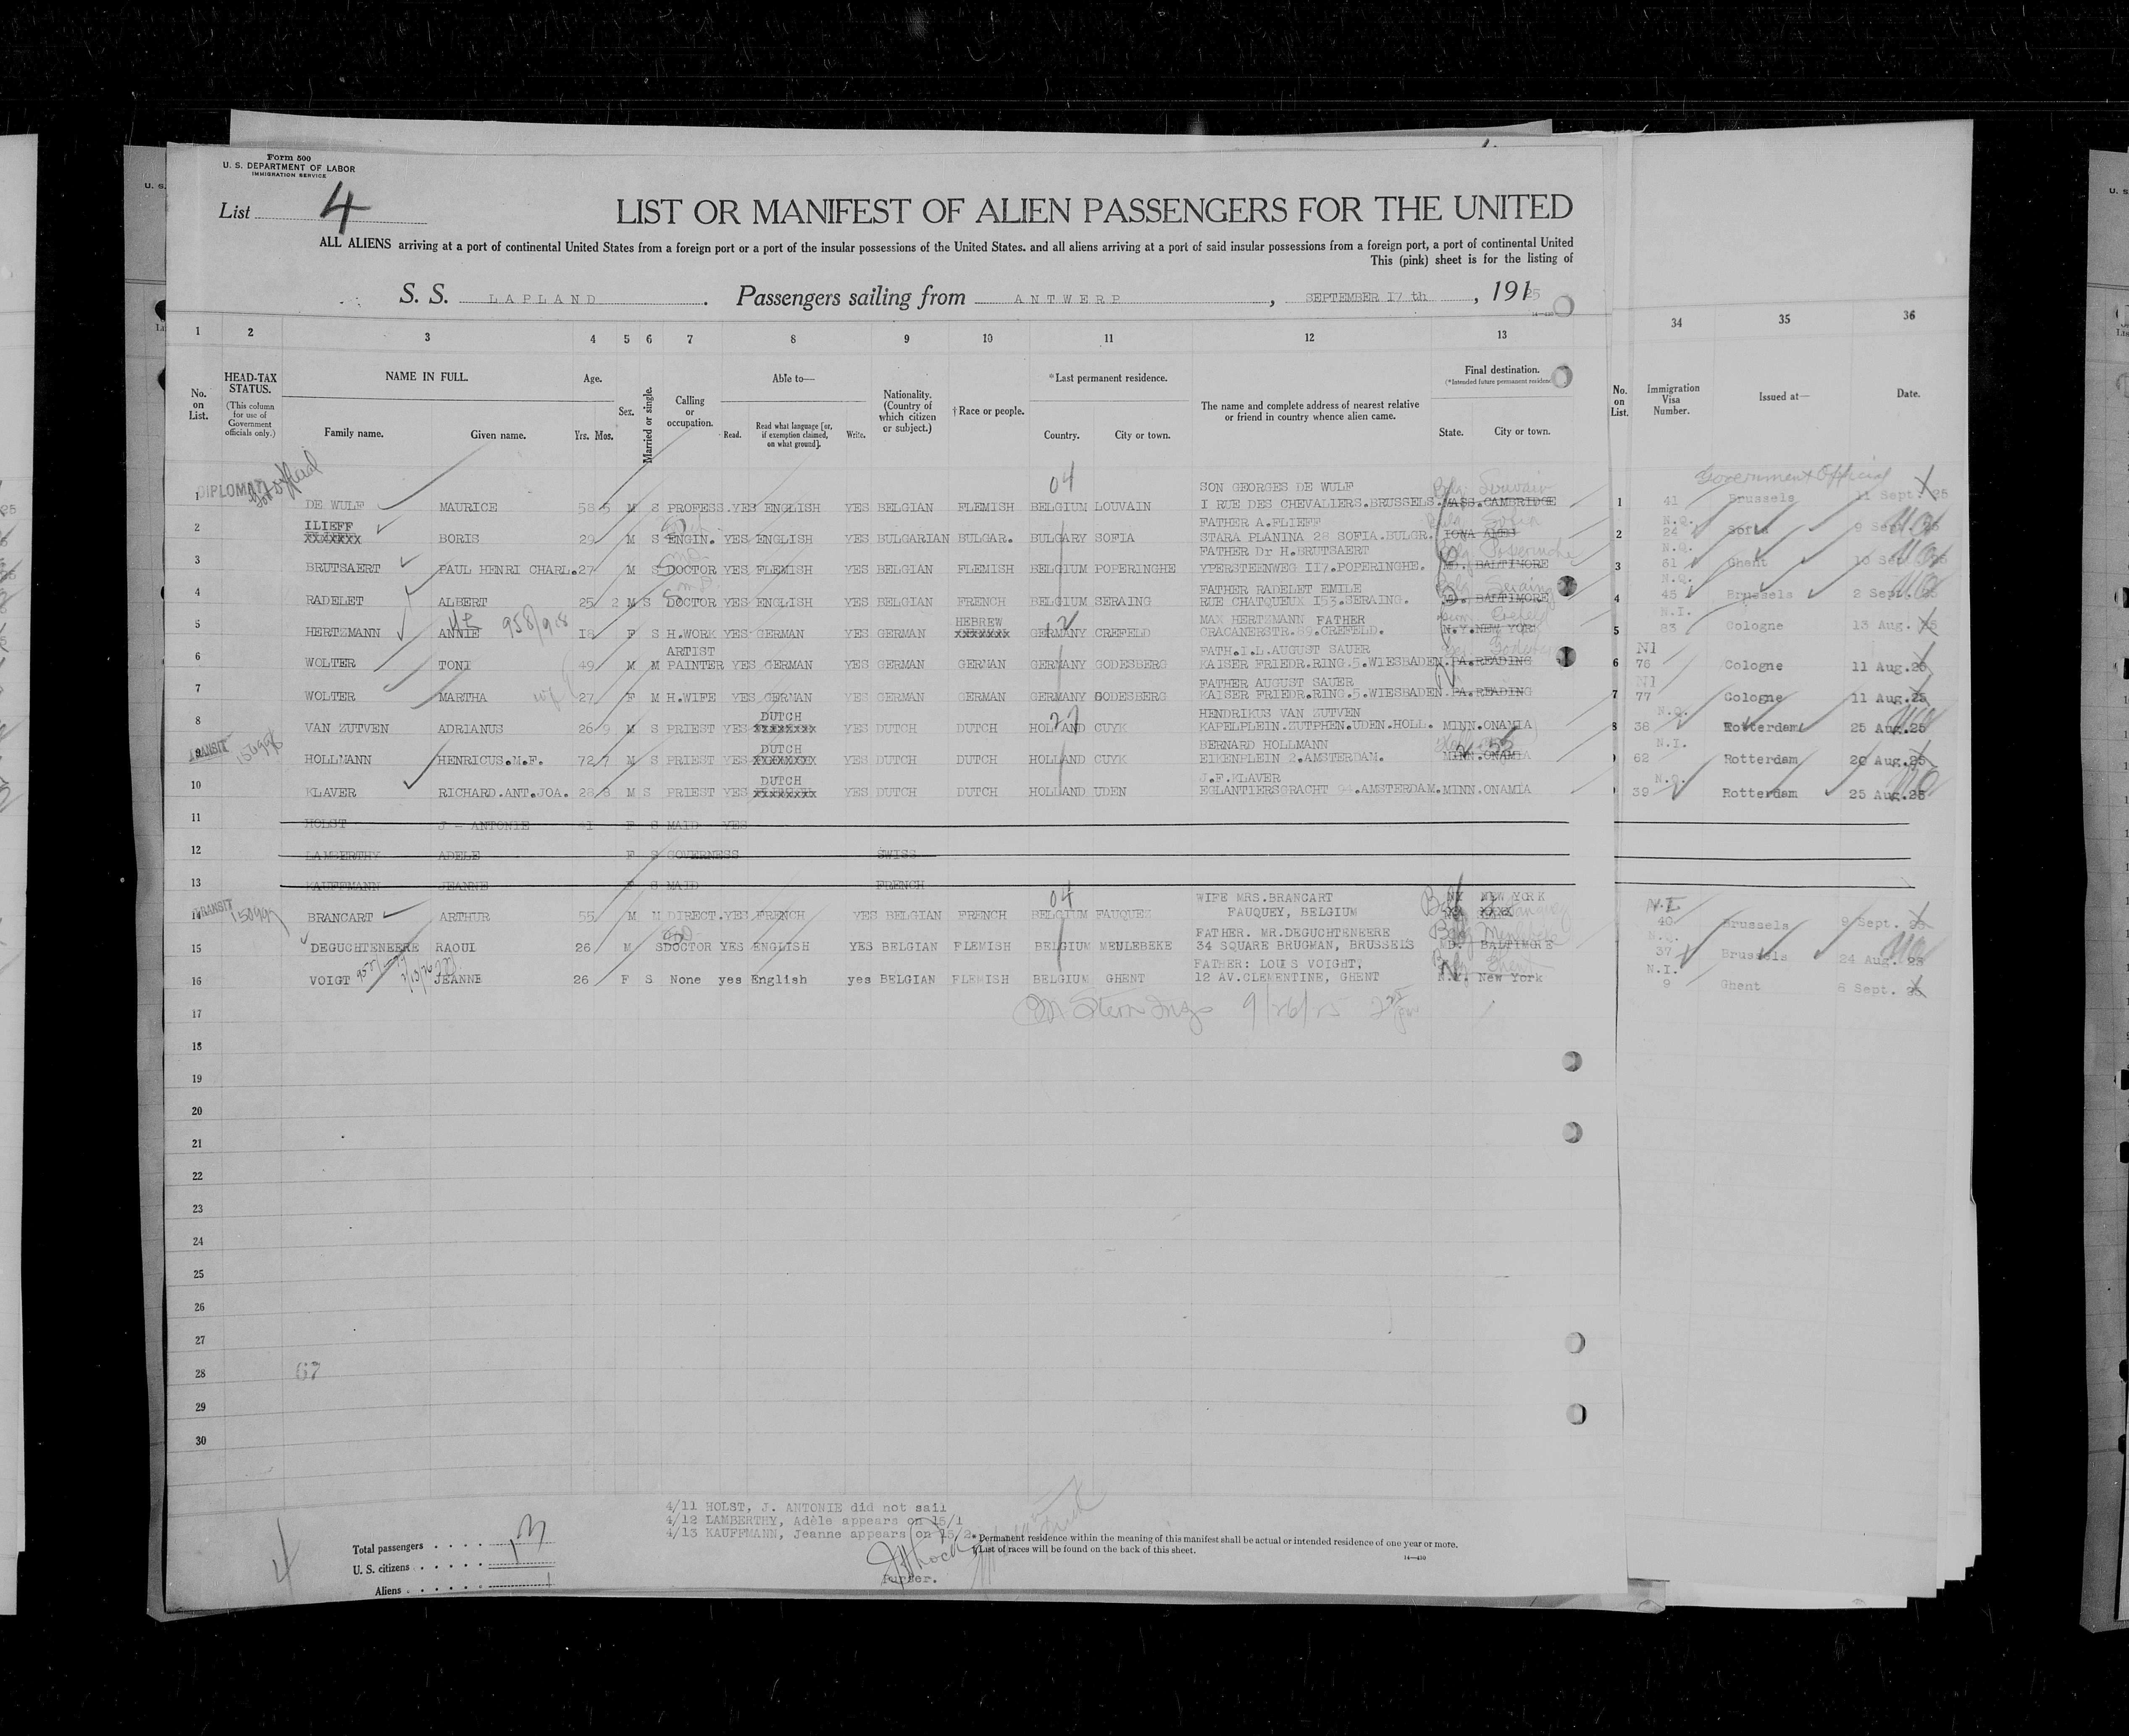 Form 500
U. S. DEPARTMENT OF LABOR
IMMIGRATION SERVICE
List 4
LIST OR MANIFEST OF ALIEN PASSENGERS FOR THE UNITED
ALL ALIENS arriving at a port of continental United States from a foreign port or a port of the insular possessions of the United States. and all aliens arriving at a port of said insular possessions from a foreign port, a port of continental United
This (pink) sheet is for the listing of
S. S. LAPLAND. Passengers sailing from ANTWERP, SEPTEMBER 17 th, 1925
1 2 3 4 5 6 7 8 9 10 11 12 13 34 35 36
No. on List. HEAD-TAX STATUS. (This column for use of Government officials only.) NAME IN FULL. Family name. Given name. Age. Yrs. Mos. Sex. Married or single. Calling or occupation. Able to— Read. Read what language [or, if exemption claimed, on what ground]. Write. Nationality. (Country of which citizen or subject.) †Race or people. *Last permanent residence. Country. City or town. The name and complete address of nearest relative or friend in country whence alien came. Final destination. (*Intended future permanent residence) State. City or town. No. on List. Immigration Visa Number. Issued at— Date.
DIPLOMAT Government Official
04
SON GEORGES DE WULF
1 DE WULF MAURICE 58 5 M S PROFESS. YES ENGLISH FLEMISH BELGIUM LOUVAIN I RUE DES CHEVALIERS.BRUSSELS. MASS.CAMBRIDGE 1 41 Brussels 11 Sept. 25
FATHER A.FLIEFF
2 ILIEFF XXXXXXX BORIS 29 M S ENGIN. YES ENGLISH YES BULGARIAN BULGAR. BULGARY SOFIA STARA PLANINA 28 SOFIA.BULGR. IONA AMES 2 N.Q. 24 Sofia 9 Sept. 25
FATHER Dr H.BRUTSAERT
3 BRUTSAERT PAUL HENRI CHARL. 27 M S DOCTOR YES FLEMISH YES BELGIAN FLEMISH BELGIUM POPERINGHE YPERSTEENWEG II7.POPERINGHE. MD. BALTIMORE 3 N.Q. 61 Ghent 10 Sept. 25
FATHER RADELET EMILE
4 RADELET ALBERT 25 2 M S DOCTOR YES ENGLISH YES BELGIAN FRENCH BELGIUM SERAING RUE CHATQUEUX I53.SERAING. MD. BALTIMORE 4 N.Q. 45 Brussels 2 Sept. 25
958/908 HEBREW 12 MAX HERTZMANN FATHER
5 HERTZMANN ANNIE I8 F S H.WORK YES GERMAN YES GERMAN XXXXXXX GERMANY CREFELD CRACANERSTR.89.CREFELD. N.Y.NEW YORK 5 N.I. 83 Cologne 13 Aug. 25
ARTIST FATH.I.L.AUGUST SAUER
6 WOLTER TONI 49 M M PAINTER YES GERMAN YES GERMAN GERMAN GERMANY GODESBERG KAISER FRIEDR.RING.5.WIESBADEN. PA.READING 6 NI 76 Cologne 11 Aug.25
FATHER AUGUST SAUER
7 WOLTER MARTHA 27 F M H.WIFE YES GERMAN YES GERMAN GERMAN GERMANY GODESBERG KAISER FRIEDR.RING.5.WIESBADEN. PA.READING 7 NI 77 Cologne 11 Aug.25
DUTCH 27 HENDRIKUS VAN ZUTVEN
8 VAN ZUTVEN ADRIANUS 26 9 M S PRIEST YES XXXXXXXX YES DUTCH DUTCH HOLLAND CUYK KAPELPLEIN.ZUTPHEN.UDEN.HOLL. MINN.ONAMIA 8 N.Q. 36 Rotterdam 25 Aug.25
TRANSIT DUTCH BERNARD HOLLMANN
9 HOLLMANN HENRICUS.M.F. 72 7 M S PRIEST YES XXXXXXXX YES DUTCH DUTCH HOLLAND CUYK EIKENPLEIN 2.AMSTERDAM. MINN.ONAMIA N.I. 62 Rotterdam 20 Aug.25
DUTCH J.F.KLAVER
10 KLAVER RICHARD.ANT.JOA. 28 8 M S PRIEST YES XXXXXXXX YES DUTCH DUTCH HOLLAND UDEN EGLANTIERSGRACHT 94.AMSTERDAM. MINN.ONAMIA N.Q. 39 Rotterdam 25 Aug.25
11 HOLST J - ANTONIE F S MAID YES
12 LAMBERTHY ADELE F S GOVERNESS SWISS
13 KAUFFMANN JEANNE F S MAID FRENCH
TRANSIT 04 WIFE MRS.BRANCART NY NEW YORK
14 BRANCART ARTHUR 55 M M DIRECT. YES FRENCH YES BELGIAN FRENCH BELGIUM FAUQUEZ FAUQUEY, BELGIUM N.I. 40 Brussels 9 Sept. 25
FATHER. MR.DEGUCHTENEERE
15 DEGUCHTENEERE RAOUL 26 M S DOCTOR YES ENGLISH YES BELGIAN FLEMISH BELGIUM MEULEBEKE 34 SQUARE BRUGMAN, BRUSSELS MD. BALTIMORE N.Q. 37 Brussels 24 Aug. 25
FATHER: LOUIS VOIGHT,
16 VOIGT JEANNE 26 F S None yes English yes BELGIAN FLEMISH BELGIUM GHENT 12 AV.CLEMENTINE, GHENT N.Y. New York N.I. 9 Ghent 8 Sept. 25
17 9/26/25
18
19
20
21
22
23
24
25
26
27
28 67
29
30
4/11 HOLST, J. ANTONIE did not sail
4/12 LAMBERTHY, Adèle appears on 15/1
4/13 KAUFFMANN, Jeanne appears on 15/2
* Permanent residence within the meaning of this manifest shall be actual or intended residence of one year or more.
† List of races will be found on the back of this sheet.
14—430
Purser.
4
Total passengers . . . . . 13
U. S. citizens . . . . .
Aliens . . . . . .